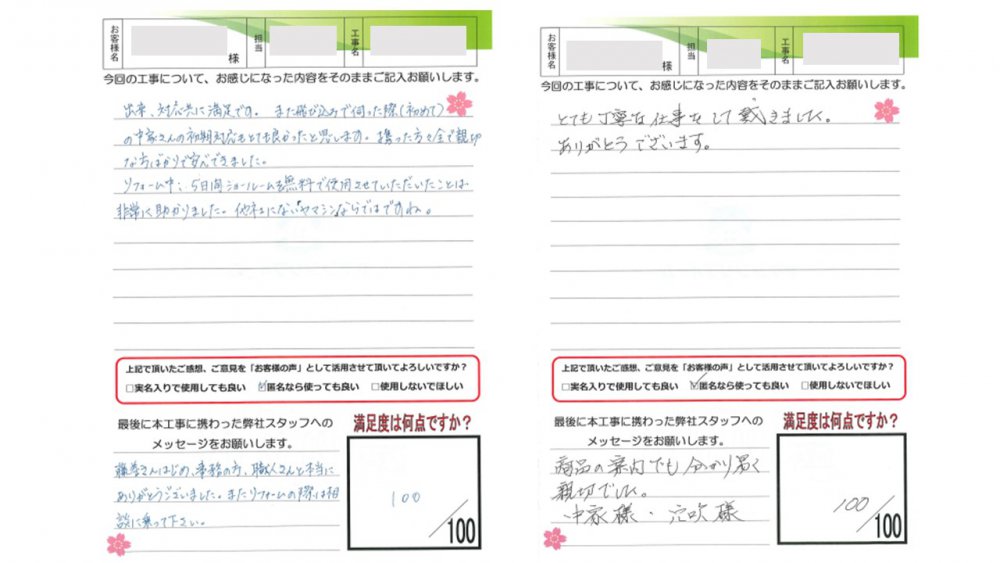 お客様名
様
担当
工事名
今回の工事について、お感じになった内容をそのままご記入お願いします。
出来、対応共に満足です。また飛び込みで伺った際(初めて)
の中家さんの初期対応もとても良かったと思います。携った方々全て親切
な方ばかりで安心できました。
リフォーム中、5日間ショールームを無料で使用させていただいたことは
非常に助かりました。他社にないヤマシンならではですね。
上記で頂いたご感想、ご意見を「お客様の声」として活用させて頂いてよろしいですか?
□実名入りで使用しても良い ☑匿名なら使っても良い □使用しないでほしい
最後に本工事に携わった弊社スタッフへの
メッセージをお願いします。
さんはじめ、事務の方、職人さんと本当に
ありがとうございました。またリフォームの際は相
談に乗って下さい。
満足度は何点ですか?
100
/100
お客様名
様
担当
工事名
今回の工事について、お感じになった内容をそのままご記入お願いします。
とても丁寧な仕事をして戴きました。
ありがとうございます。
上記で頂いたご感想、ご意見を「お客様の声」として活用させて頂いてよろしいですか?
□実名入りで使用しても良い ☑匿名なら使っても良い □使用しないでほしい
最後に本工事に携わった弊社スタッフへの
メッセージをお願いします。
商品の案内でも分かり易く
親切でした。
・中家様・穴吹様
満足度は何点ですか?
100
/100